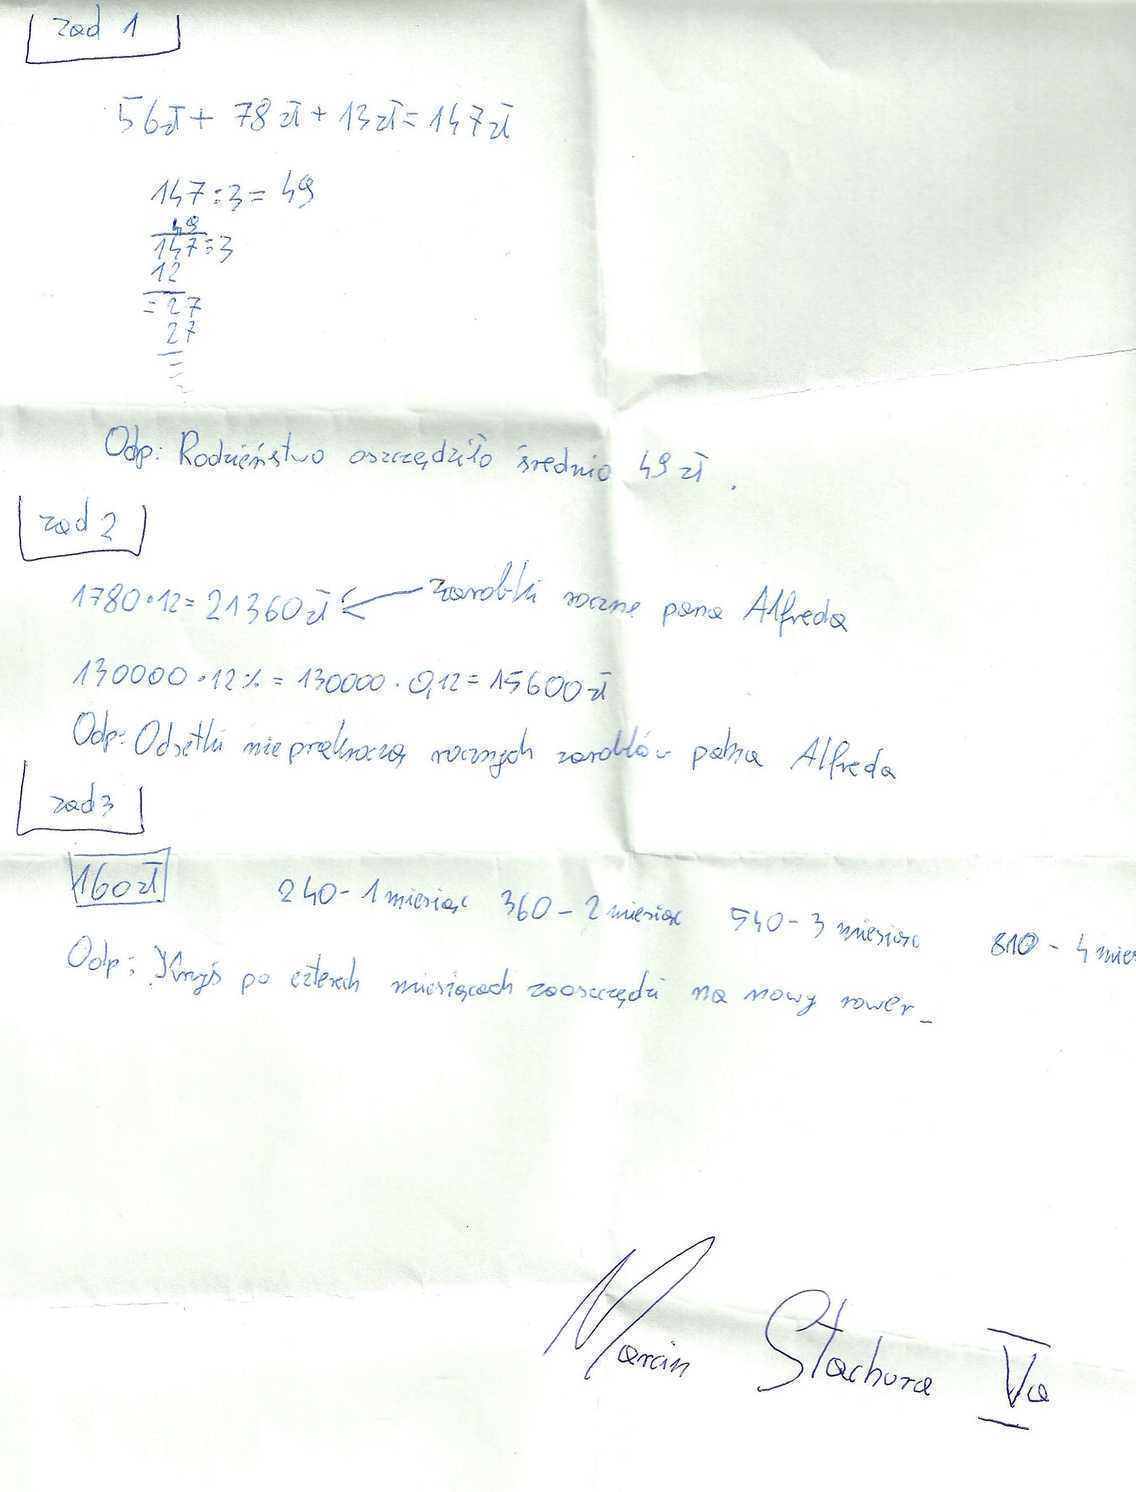 zad 1
56zł + 78zł + 13zł = 147zł
147:3 = 49
49
147:3
12
=27
27
==
Odp: Rodzeństwo oszczędziło średnio 49 zł.
zad 2
1780·12= 21360zł ← zarobki roczne pana Alfreda
130000·12% = 130000·0,12= 15600zł
Odp: Odsetki nie prękroczą rocznych zarobków pana Alfreda
zad 3
160zł 240-1 miesiąc 360-2 miesiąc 540-3 miesiąc 810-4 mies
Odp: Krzyś po czterech miesiącach zaoszczędzi na nowy rower_
Marcin Stachura Va